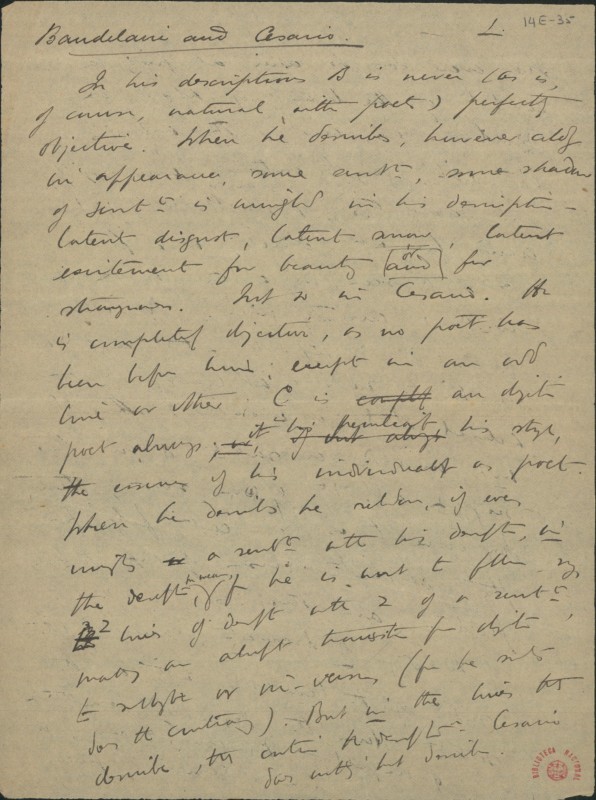 Baudelaire and Cesario. 1. 14E-35
In his descriptions B is never (as is,
of course, natural with poets) perfectly
objective. When he describes, however aloof
in appearance, some sentt, some shadow
of sentt is mingled in his description —
latent disgust, latent sorrow, latent
excitement for beauty and or for
strangeness. Not so in Cesario. He
is completely objective, as no poet has
been before him except in an odd
line or other. C is an objective
poet always; it is his peculiarity, his style,
the essence of his individuality as poet.
When he describes he seldom, if ever
mingles a sentt with his descript, in
the descriptn, for he is wont to follow say
2 lines of descript with 2 of a sentt,
making an abrupt transition from objective
to subjective or vice-versa (for he
does the contrary). But in the lines that
describe, that contain the descriptn Cesario
does nothing but describe.
BIBLIOTECA NACIONAL